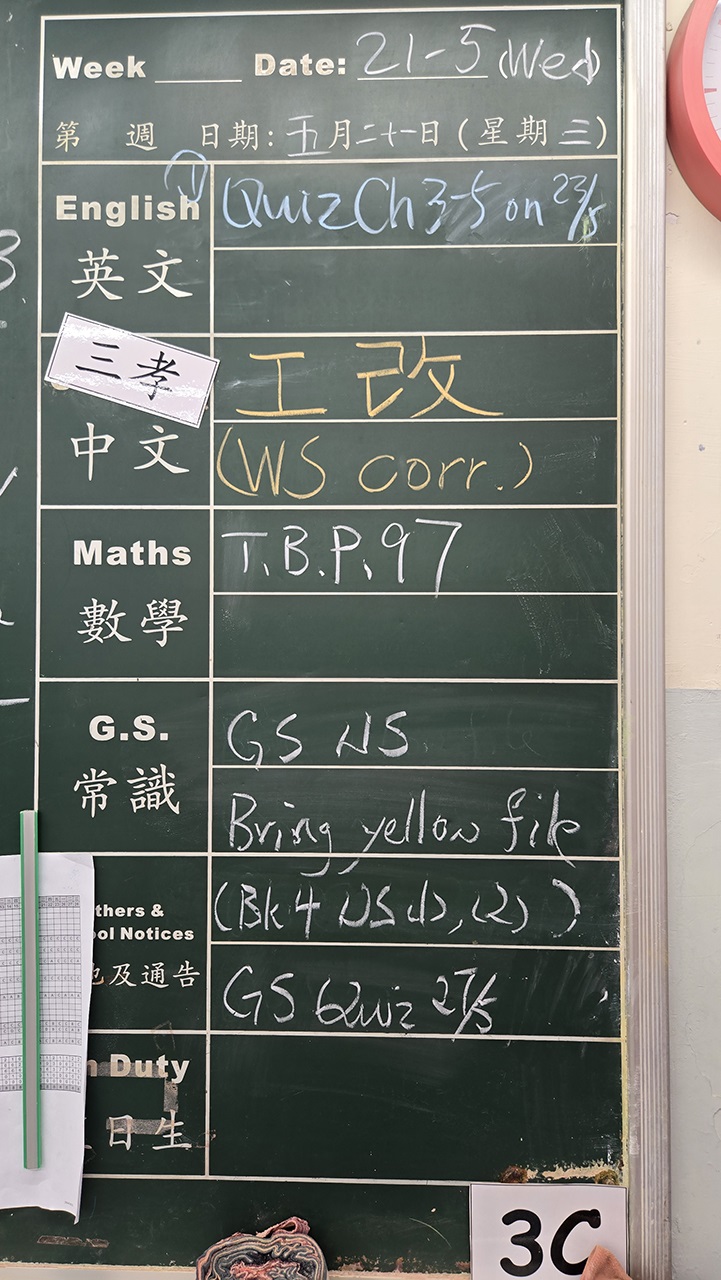 Week ____ Date: 21-5 (Wed)
第 週 日期: 五月二十一日 (星期三)
English ① Quiz Ch 3-5 on 23/5
英文
三孝 工改
中文 (WS corr.)
Maths T.B.P.97
數學
G.S. GS WS
常識 Bring yellow file
thers & (Bk 4 WS (1), (2))
ol Notices
及通告 GS Quiz 27/5
Duty
日生
3C